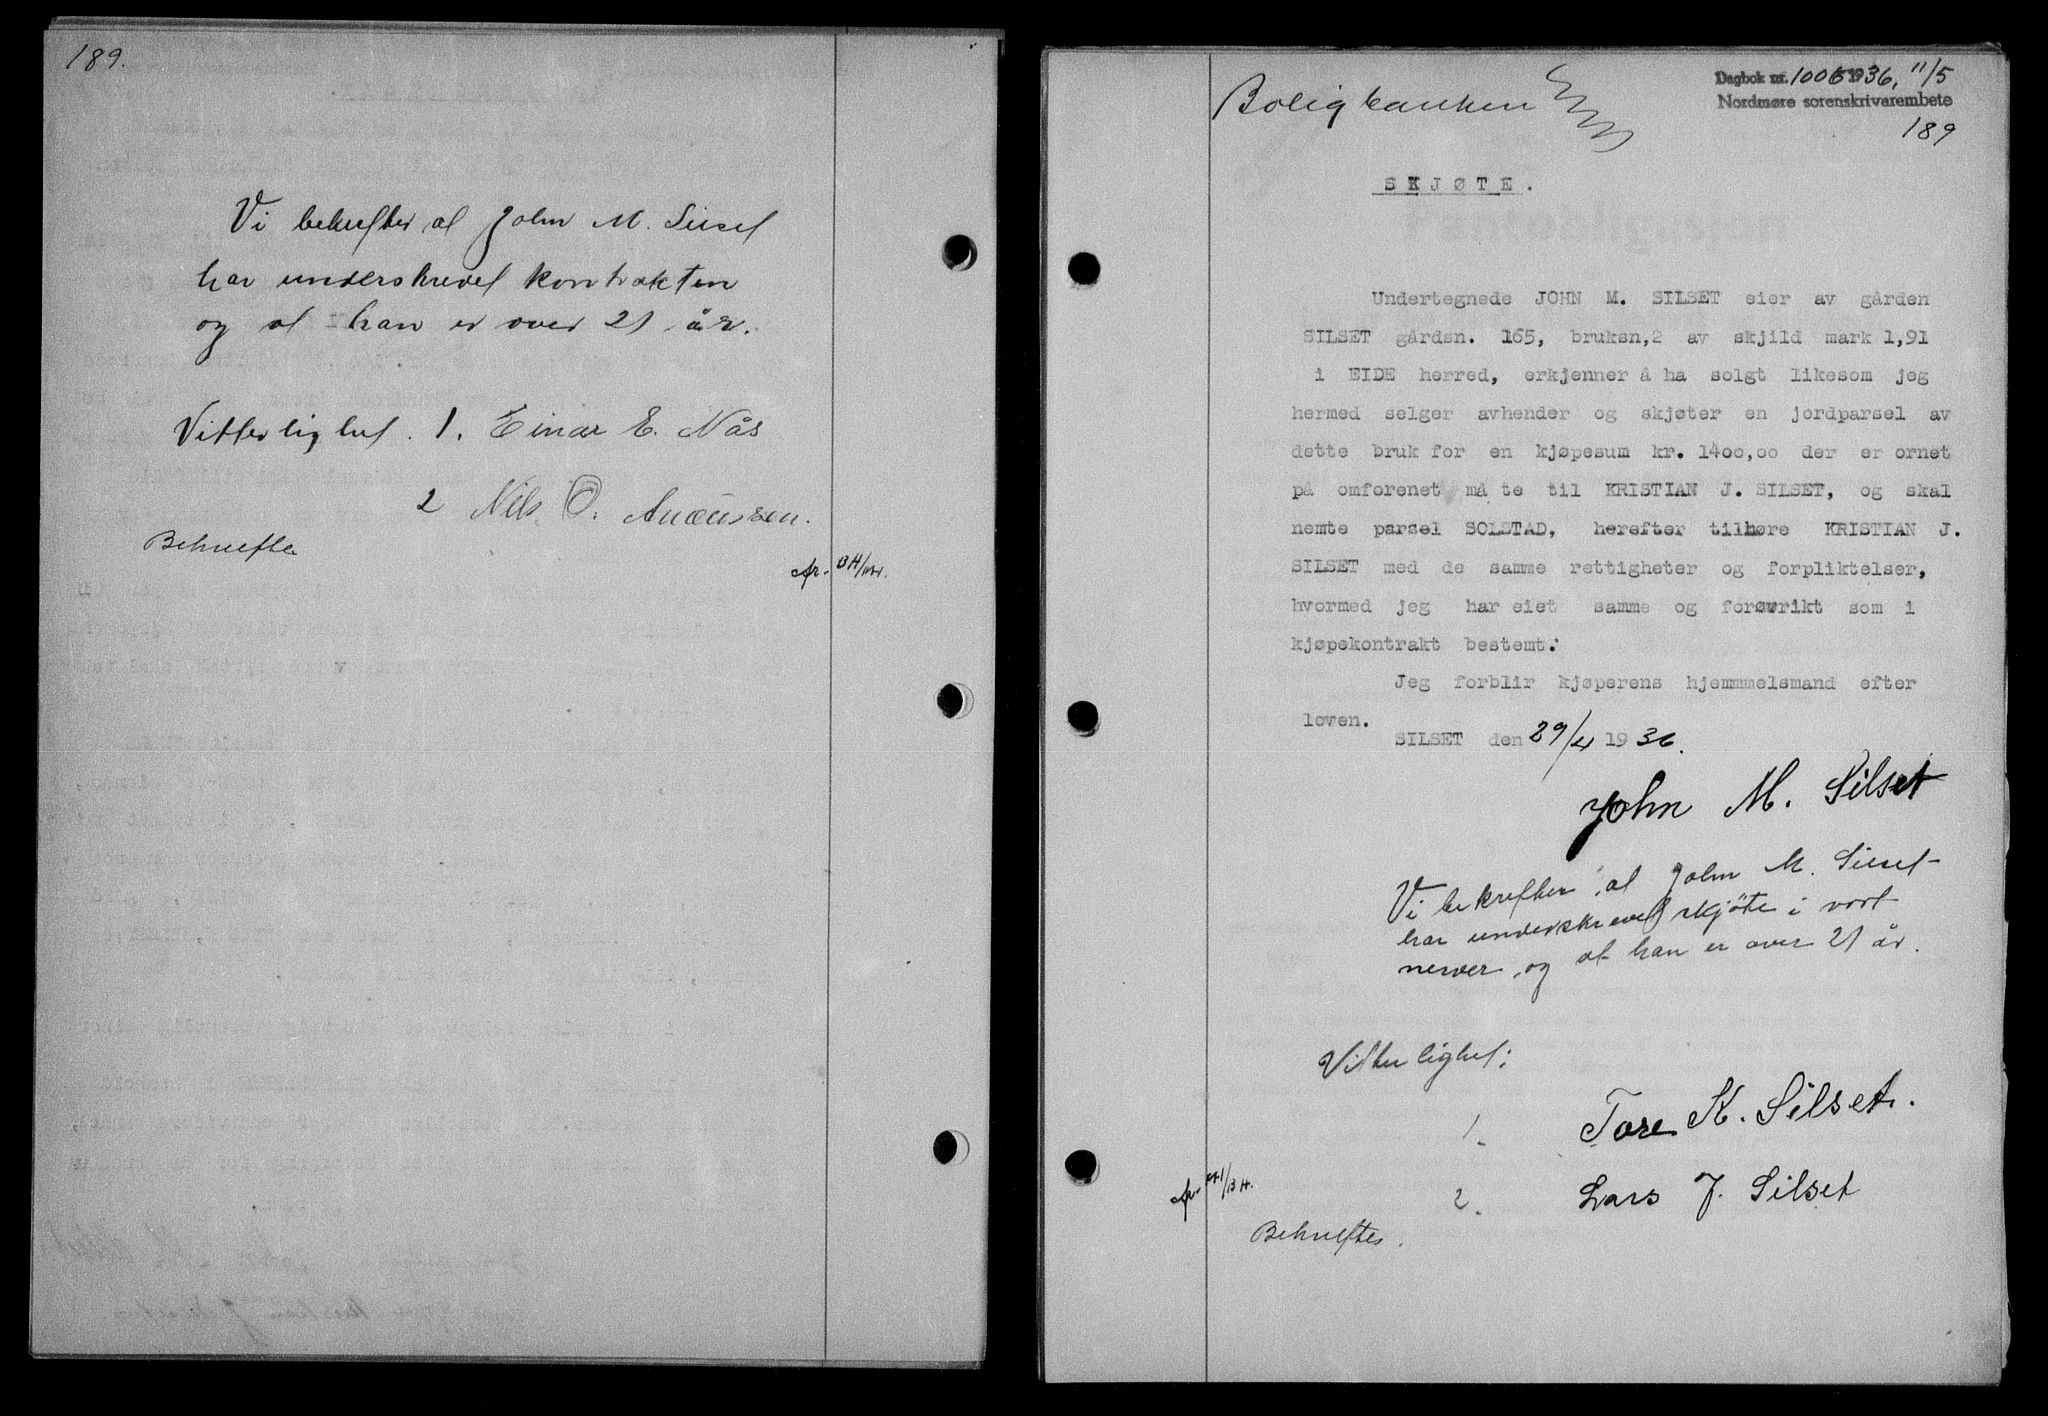 189.
Vi bekrefter at John M. Silset
har underskrevet kontrakten
og at han er over 21 år.
Vitterlighet. 1. Einar E. Nås
2 Nils O.
Bekreftes
Dagbok nr. 1006 1936, 11/5
Nordmøre sorenskrivarembete
Boligbanken
189
SKJØTE.
Undertegnede JOHN M. SILSET eier av gården
SILSET gårdsn. 165, bruksn,2 av skjild mark 1,91
i EIDE herred, erkjenner å ha solgt likesom jeg
hermed selger avhender og skjøter en jordparsel av
dette bruk for en kjøpesum kr. 1400,00 der er ornet
på omforenet må te til KRISTIAN J. SILSET, og skal
nemte parsel SOLSTAD, herefter tilhøre KRISTIAN J.
SILSET med de samme rettigheter og forpliktelser,
hvormed jeg har eiet samme og forøvrikt som i
kjøpekontrakt bestemt.
Jeg forblir kjøperens hjemmmelsmand efter
loven.
SILSET den 29/4 1936.
John M. Silset
Vi bekrefter, at John M. Silset
har underskrevet skjöte i vort
nerver, og at han er over 21 år.
Vitterlighet:
1. Tore K. Silset.
2. Lars J. Silset
Bekreftes.